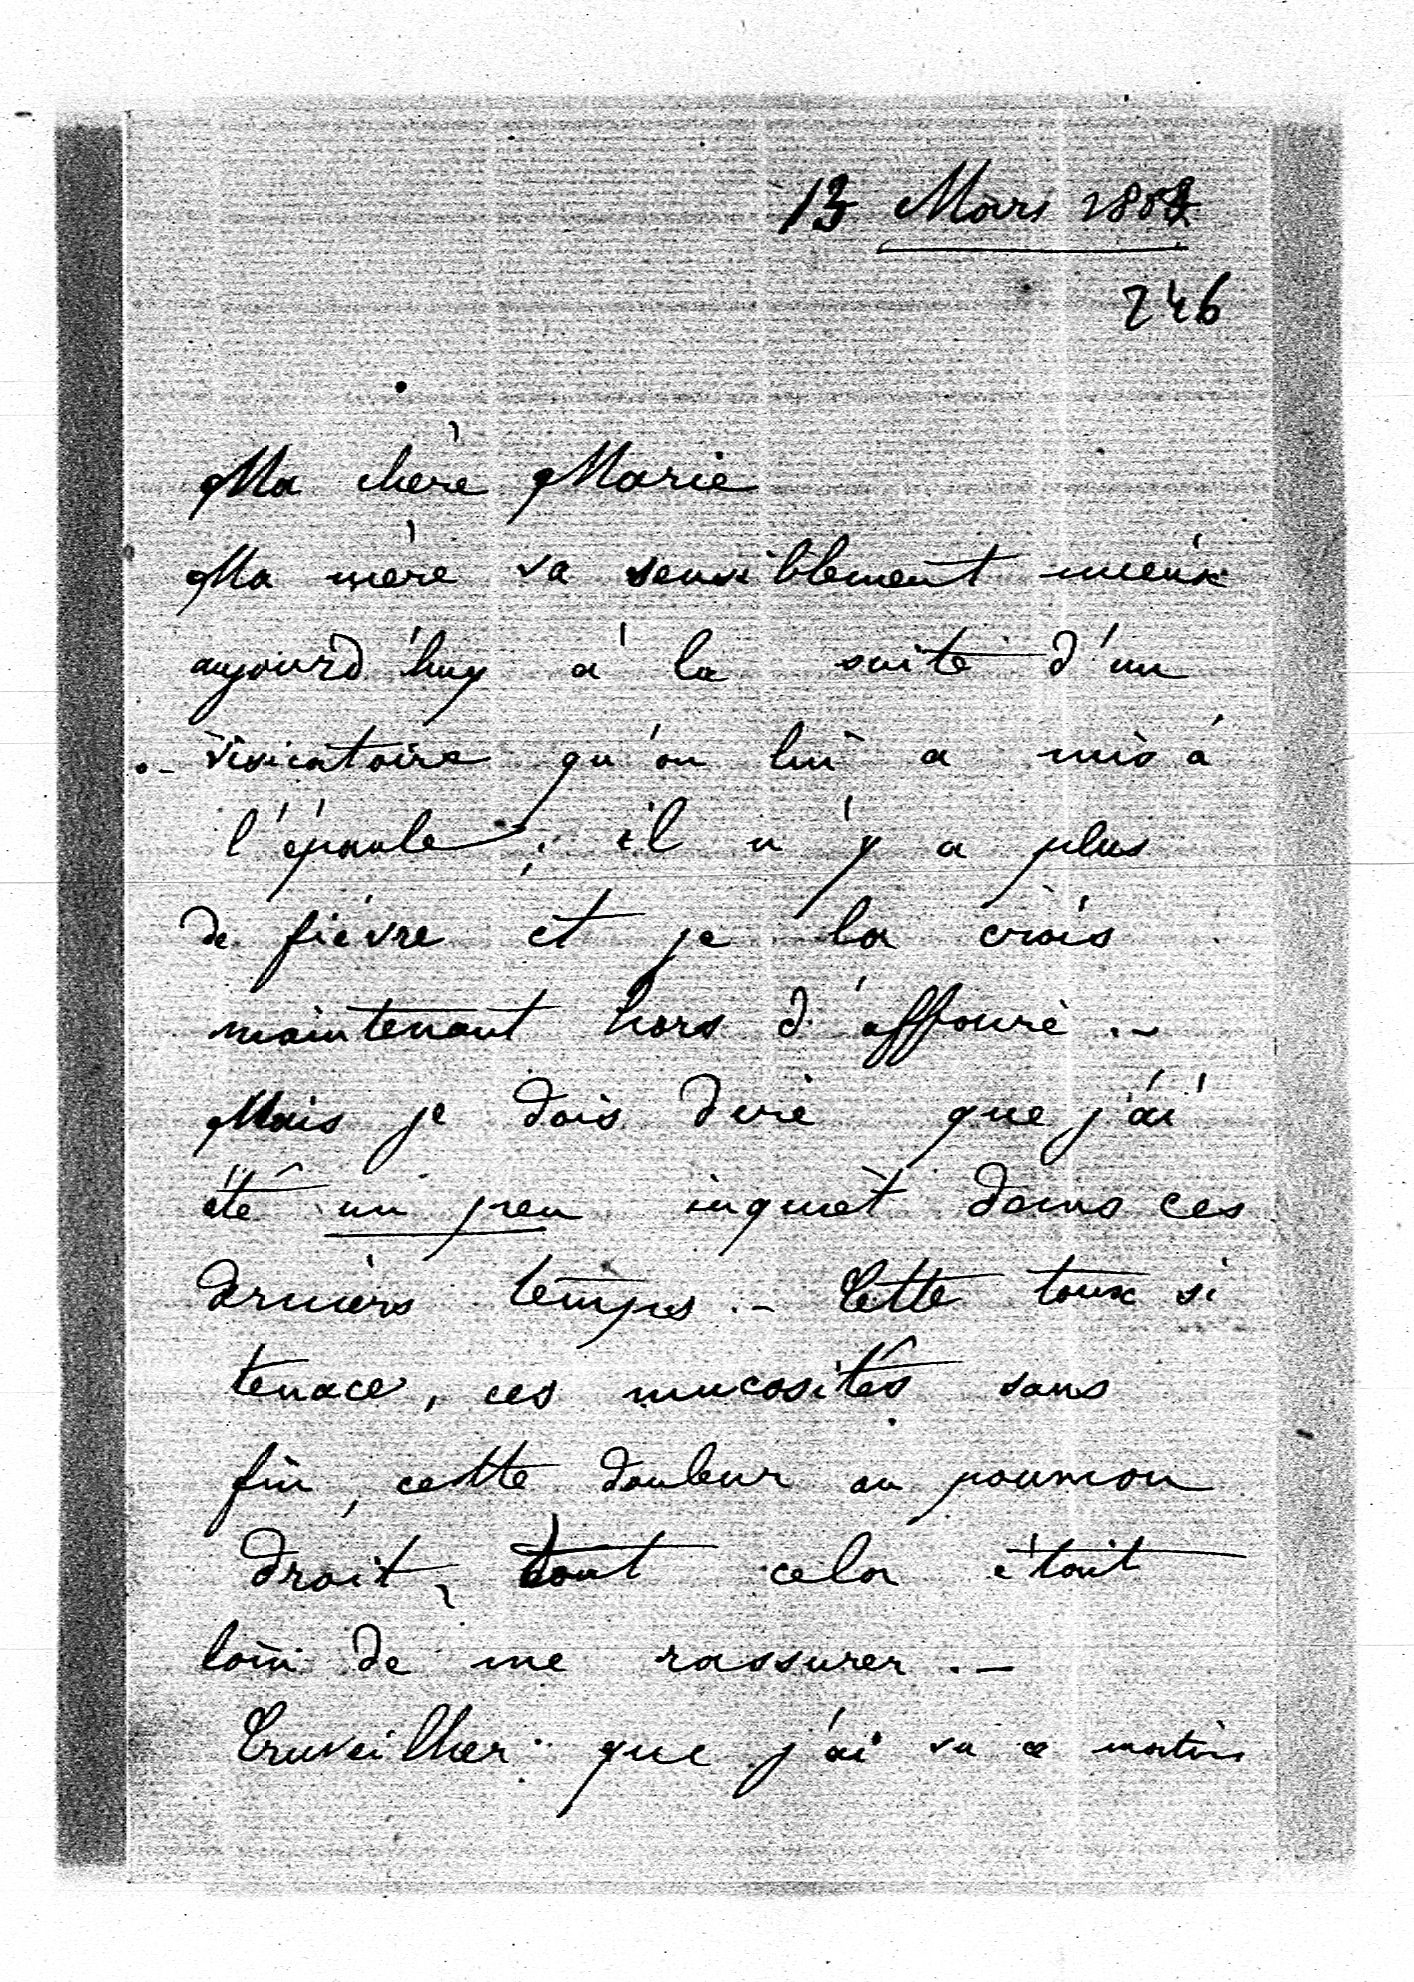 13 Mars
246
Ma chère Marie
Ma mère va sensiblement mieux
aujourd'huy à la suite d'un
visicatoire qu'on lui a mis à
l'épaule ; il n'y a plus
de fièvre et je la crois
maintenant hors d'affaire .-
Mais je dois dire que j'ai
été un peu inquiet dans ces
derniers temps .- Cette toux si
tenace, ces mucosités sans
fin, cette douleur au poumon
droit, tout cela était
loin de me rassurer .-
Cruveilher que j'ai vu ce matin